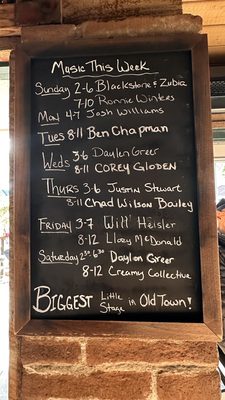 Music This Week
Sunday 2-6 Blackstone & Zubia
7-10 Ronnie Winters
Mon 4-7 Josh Williams
Tues 8-11 Ben Chapman
Weds 3-6 Daylon Greer
8-11 COREY GLODEN
Thurs 3-6 Justin Stewart
8-11 Chad Wilson Bailey
Friday 3-7 Will Heisler
8-12 Llory McDonald
Saturday 2:30-6:30 Daylon Greer
8-12 Creamy Collective
BIGGEST Little Stage in Old Town!